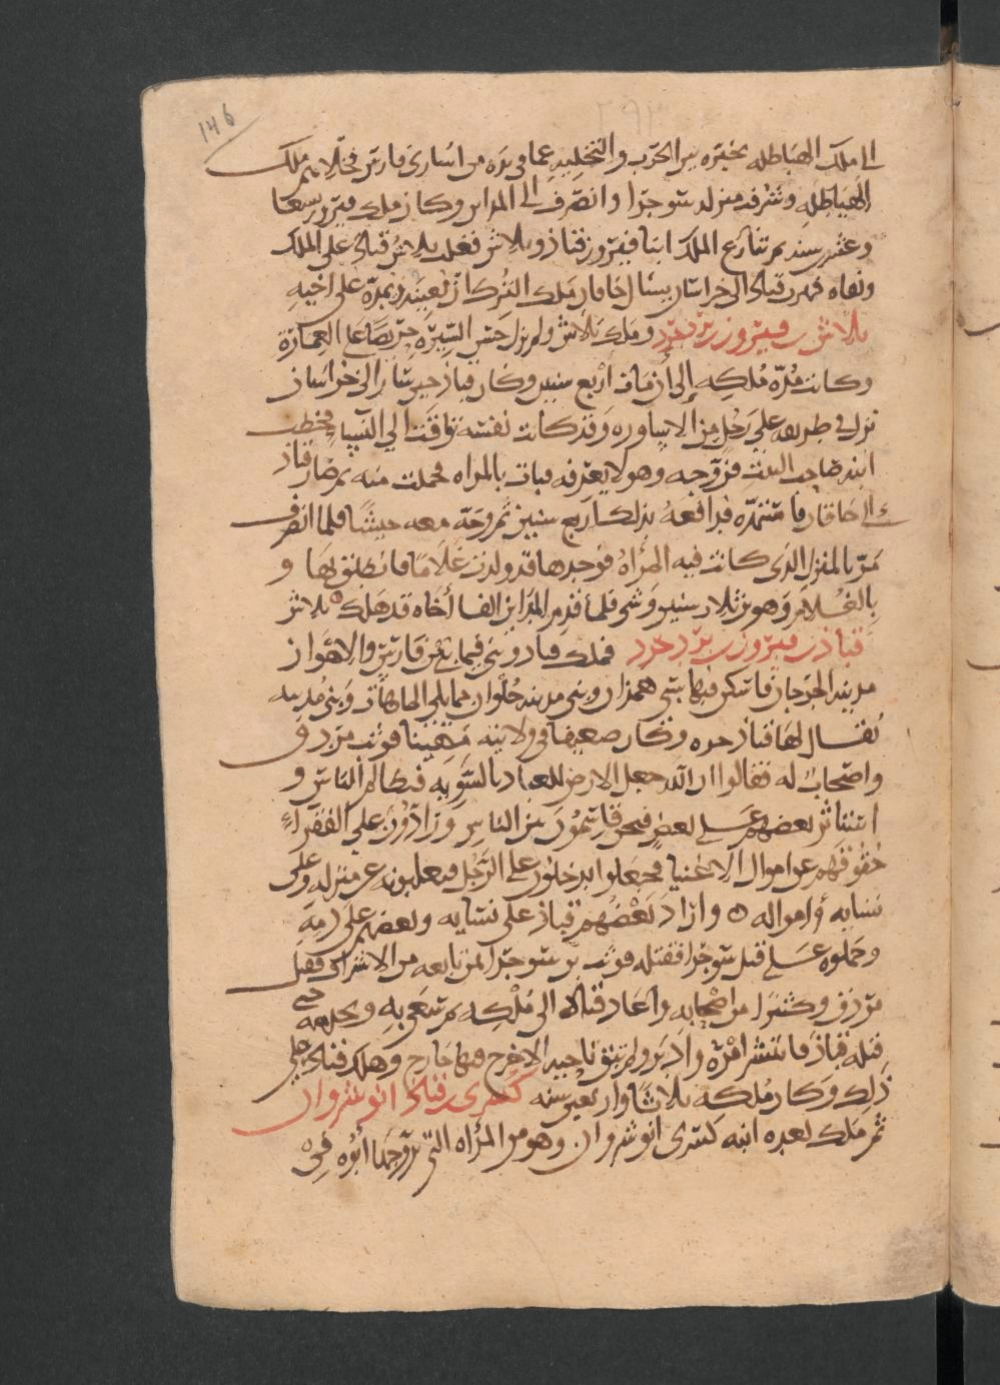 146
الى ملك الهياطلة يخيره بين الحرب والتخلية عما في يده من اسارى فارس فخلا بهم ملك
الهياطلة وشرف منزلة سوخرا وانصرف الى المداين وكان ملك فيروز سبعا
وعشرين سنة ثم تنازع الملك ابنا فيروز قباذ وبلاش فغلب بلاش قباذ على الملك
ونفاه فهرب قباذ الى خراسان يسال خاقان ملك الترك ان يعينه ويمده على اخيه
بلاش بن فيروز بن يزدجرد وملك بلاش ولم يزل حسن السيرة حريصا على العمارة
وكانت مدة ملكه إلى أن مات أربع سنين وكان قباذ حين سار الى خراسان
نزل في طريقه على رجل من الاساورة وقد كانت نفسه تاقت الى النساء فخطب
ابنة صاحب البيت فزوجه وهو لا يعرفه فبات بالمراه فحملت منه ثم صار قباذ
الى خاقان فاستمده فدافعه بذلك اربع سنين ثم وجه معه جيشا فلما انصرف
مر بالمنزل الذي كانت فيه المرأة فوجدها قد ولدت غلاما فانطلق بها و
بالغلام وهو بن ثلاث سنين وشي فلما قدم المداين الفا أخاه قد هلك بلاش
قباذ بن فيروز بن يزدجرد فملك قباذ وبنى فيما بين فارس والاهواز
مدينة الجرجان فاسكن فيها سبي همدان وبنى مدينة حلوان مما يلي الماهات وبنى مدينة
يقال لها قباذ خره وكان ضعيفا في ولايته مهينا فوثب مزدق
واصحاب له فقالوا ان الله جعل الارض للعباد بالسوية فتظالم الناس و
استاثر بعضهم على بعض فنحن قاسمون بين الناس ورادون على الفقراء
حقوقهم من اموال الاغنيا فجعلوا يدخلون على الرجل فيغلبونه على منزله وعلى
نسايه وامواله وازاد بعضهم قباذ على نسايه وبعضهم على دمه
وحملوه على قتل سوخرا فقتله فوثب بن سوخرا بمن تابعه من الاشراف فقتل
مزدق وكثيرا من اصحابه وأعاد قباذ الى ملكه ثم سعي به وبحلمه حتى
قتله قباذ فانتشر امره وادبر ولم تبق ناحية الا خرج فيها خارج وهلك قباذ على
ذلك وكان ملكه ثلاثا وأربعين سنة كسرى بن قباذ انوشروان
ثم ملك بعده ابنه كسرى انوشروان وهو من المرأة التي تزوجها أبوه في